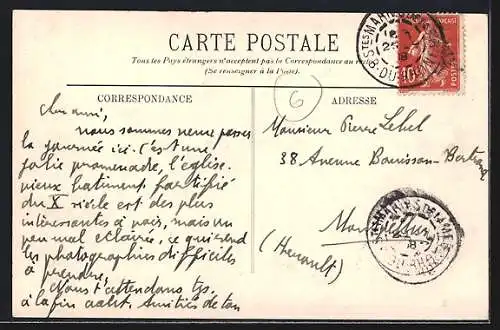 CARTE POSTALE
Tous les Pays étrangers n'acceptent pas la Correspondance au
(Se renseigner à la Poste).
CORRESPONDANCE
Cher ami,
nous sommes venus passer
la journée ici. C'est une
jolie promenade, l'église
vieux batiment fortifié
du X siècle est des plus
interessantes à voir, mais un
peu mal eclairée, ce qui rend
les photographies difficiles
à prendre.
Nous t'attendons tjs.
à la fin août. Amitiés de ton
6
ADRESSE
Monsieur Pierre Lebel
38 Avenue Bouisson-Bertrand
Montpellier
(Herault)
POSTES
STES MARIES DE LA MER
BOUCHES-DU-RHONE